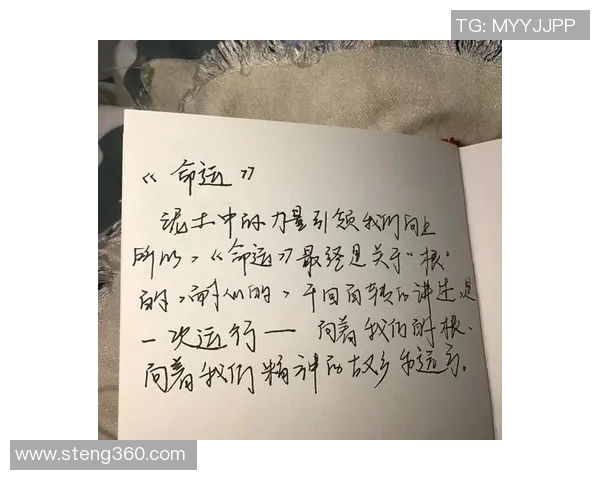 TG: MYYJJPP
《命运》
泥土中的力量引领我们向上
所以,《命运》最终是关于“根”
的,千回百转的讲述,是
一次远行— 向着我们的根、
向着我们精神的故乡
www.steng360.com